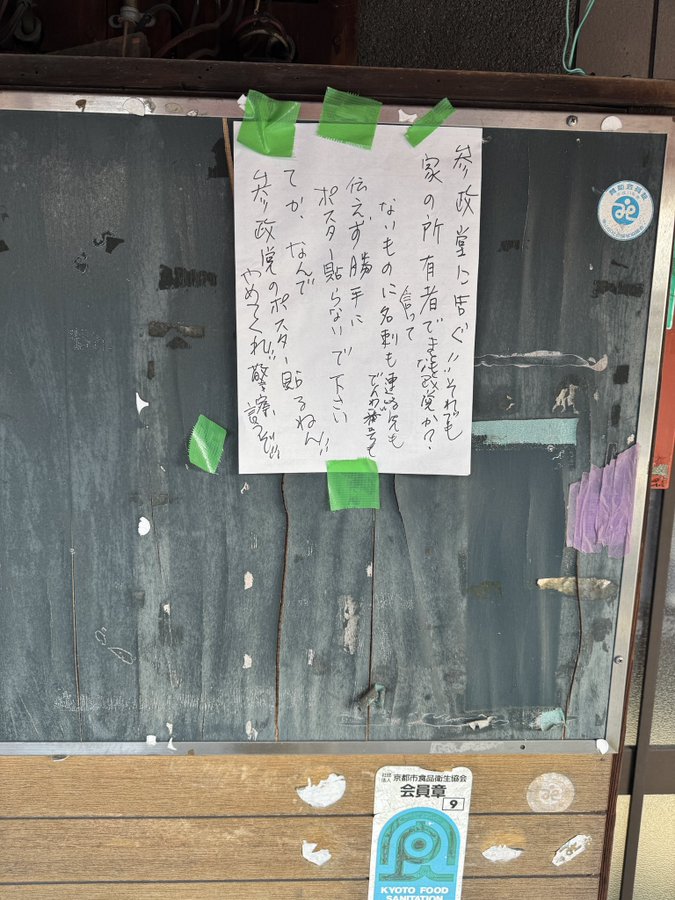 参政堂に告ぐ!!それでも
家の所有者でまともな政党か?
ないものに名刺も連絡先も
言って
でんわ番号も
伝えず勝手に
ポスター貼らないで下さい
てか、なんで
参政党のポスター貼るねん!!
やめてくれ!!警察言うぞ!!
社団法人 京都市食品衛生協会
会員章
9
KYOTO FOOD
SANITATION